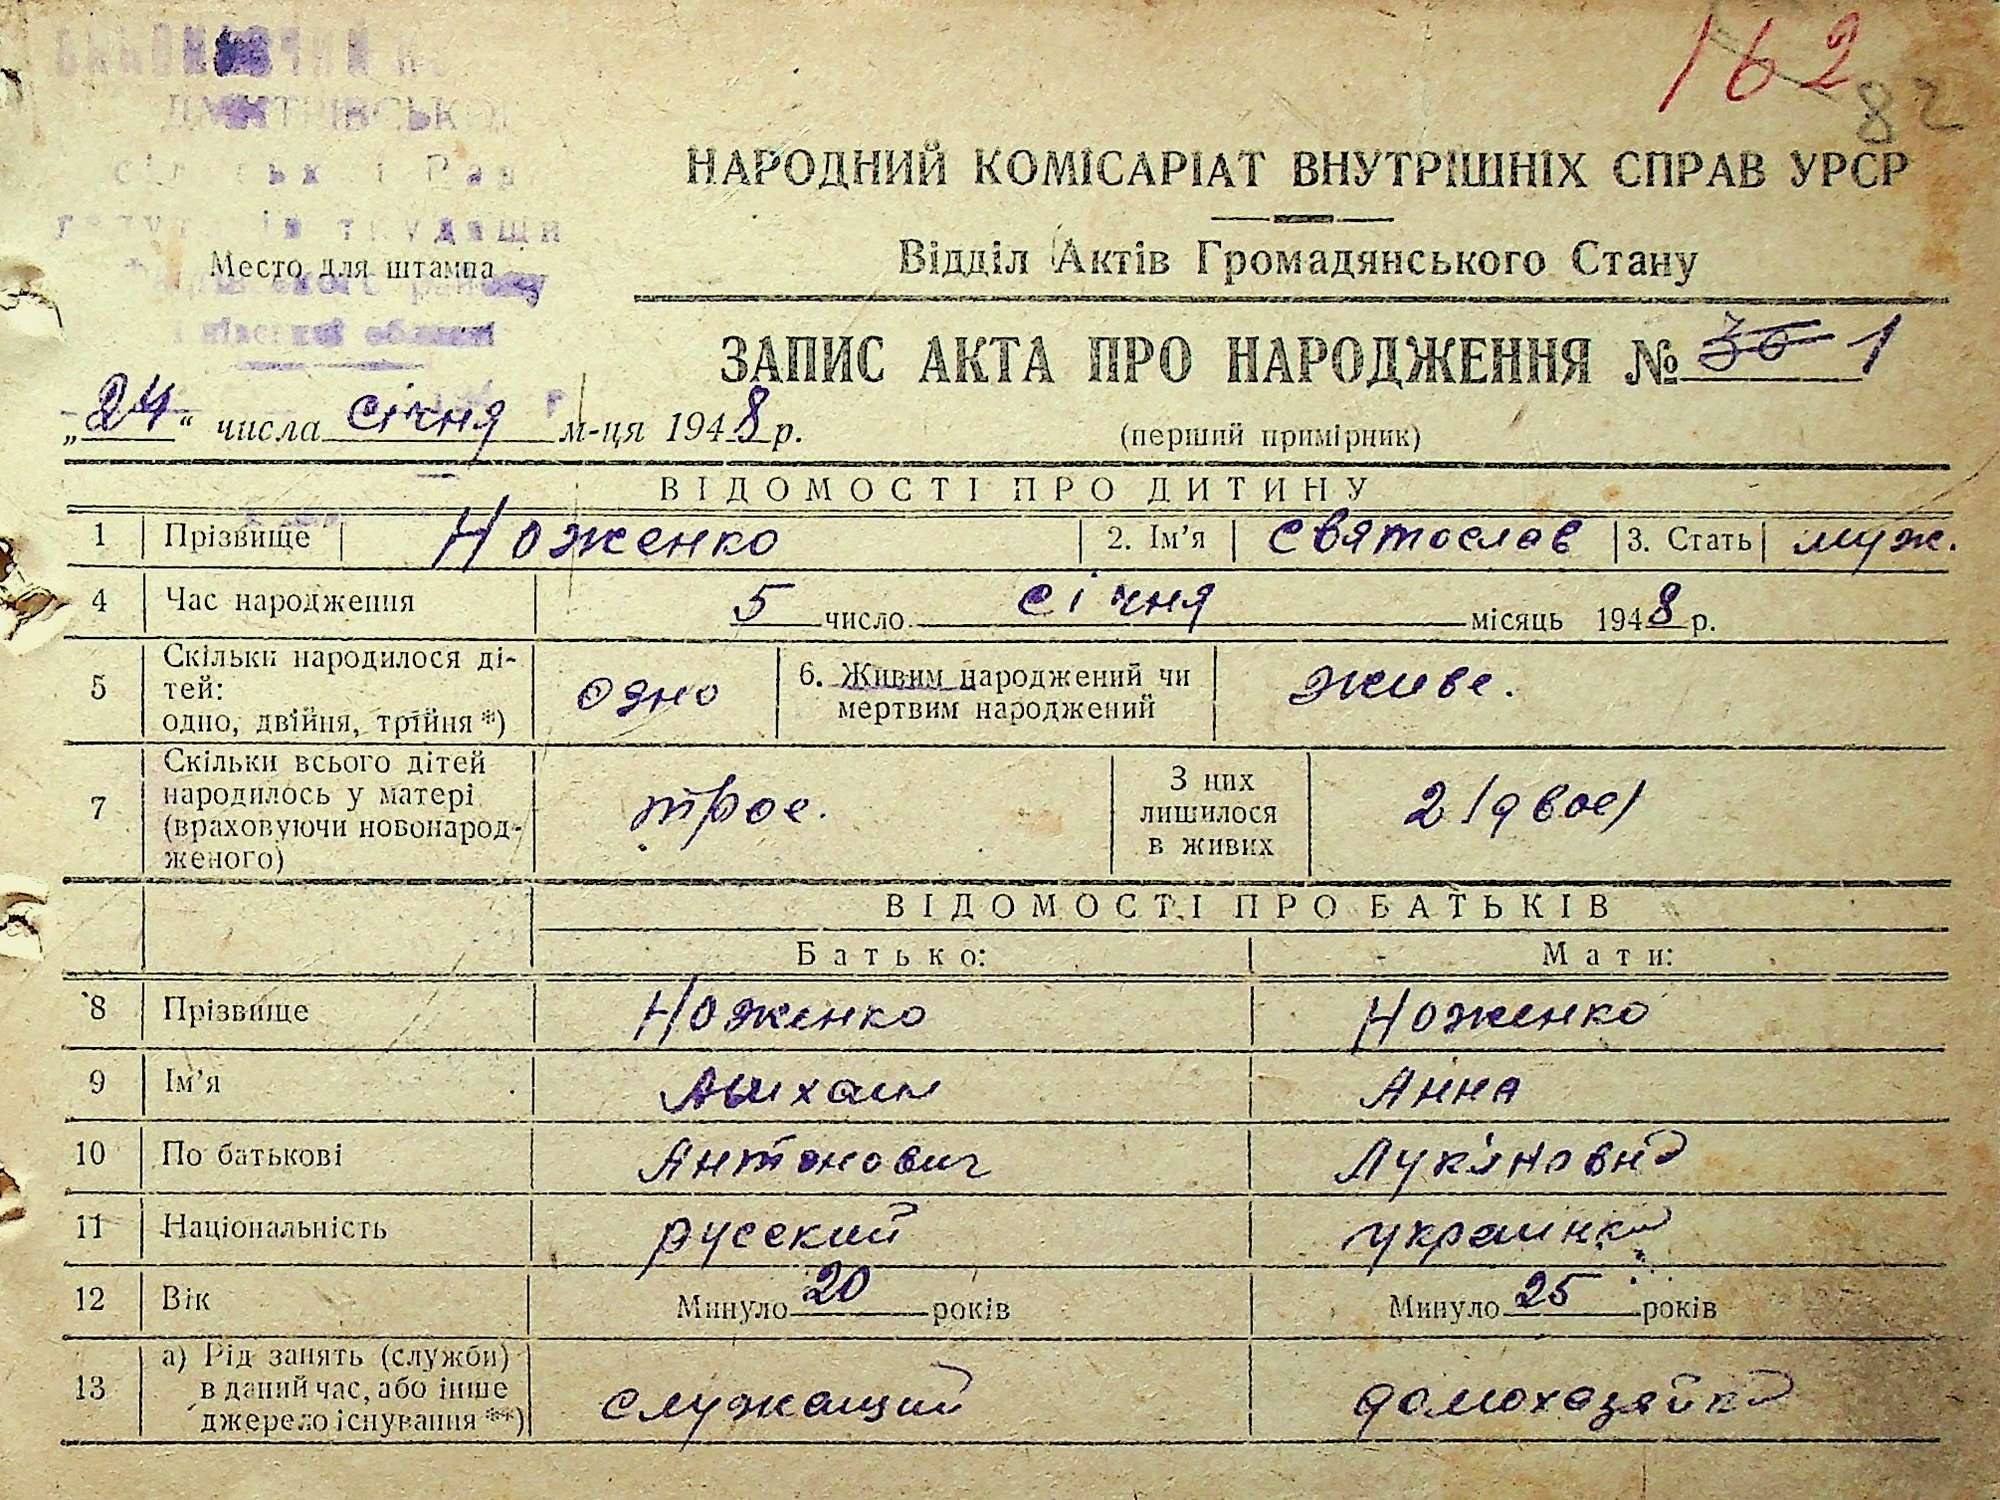 162
82
ДМИТРІВСЬКОЇ
НАРОДНИЙ КОМІСАРІАТ ВНУТРІШНІХ СПРАВ УРСР
Відділ Актів Громадянського Стану
Место для штампа
області
ЗАПИС АКТА ПРО НАРОДЖЕННЯ № 30 1
„24“ числа січня м-ця 1948 р.
(перший примірник)
ВІДОМОСТІ ПРО ДИТИНУ
1 Прізвище Ноженко 2. Ім’я Святослав 3. Стать муж.
4 Час народження 5 число січня місяць 1948 р.
5 Скільки народилося ді-
тей:
одно, двійня, трійня *) одно 6. Живим народжений чи
мертвим народжений живе.
7 Скільки всього дітей
народилось у матері
(враховуючи новонарод-
женого) трое. З них
лишилося
в живих 2 (двое)
ВІДОМОСТІ ПРО БАТЬКІВ
Батько: Мати:
8 Прізвище Ноженко Ноженко
9 Ім’я Михаил Анна
10 По батькові Антонович Лук'яновна
11 Національність русский украинка
12 Вік Минуло 20 років Минуло 25 років
13 а) Рід занять (служби)
в даний час, або інше
джерело існування **) служащий домохазяйка